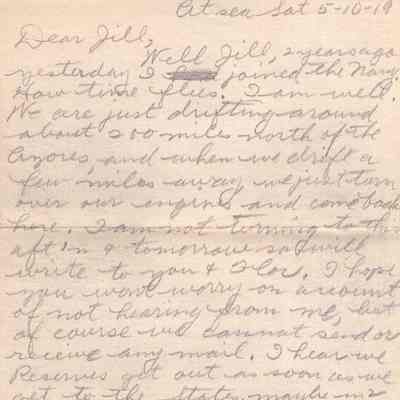 At sea Sat 5-10-19
Dear Jill,
Well Jill, 2 years ago
yesterday I joined the Navy.
How time flies. I am well.
We are just drifting around
about 200 miles north of the
Azores, and when we drift a
few miles away we just turn
over our engines and come back
here. I am not to this
aft'n & tomorrow so I will
write to you & Flor. I hope
you wont worry on account
of not hearing from me, but
of course we cannot send or
receive any mail. I hear we
Reserves get out as soon as we
get to the States, maybe in 2